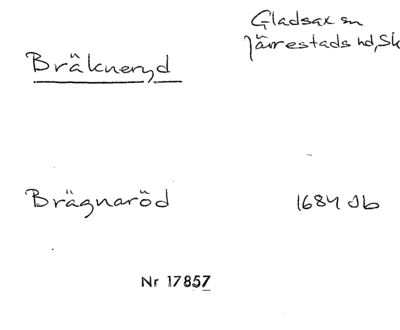 Gladsax sn
Järrestads hd, Sk
Bräkneryd
Brägnaröd 1684 Jb
Nr 17857